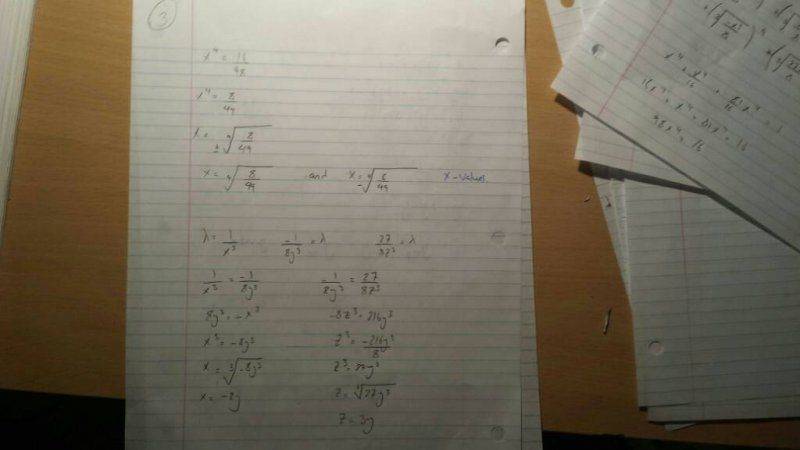 3
x⁴ = 16/98
x⁴ = 8/49
x = ± ⁴√(8/49)
x = ⁴√(8/49) and x = -⁴√(8/49) x-values.
λ = 1/x³ -1/8y³ = λ 27/8z³ = λ
1/x³ = -1/8y³ -1/8y³ = 27/8z³
8y³ = -x³ -8z³ = 216y³
x³ = -8y³ z³ = -216y³/8
x = ³√(-8y³) z³ = 27y³
x = -2y z = ³√(27y³)
z = 3y
x⁴ + x⁴/16 + 81x⁴/16 = 1
16x⁴ + x⁴ + 81x⁴ = 16
98x⁴ = 16